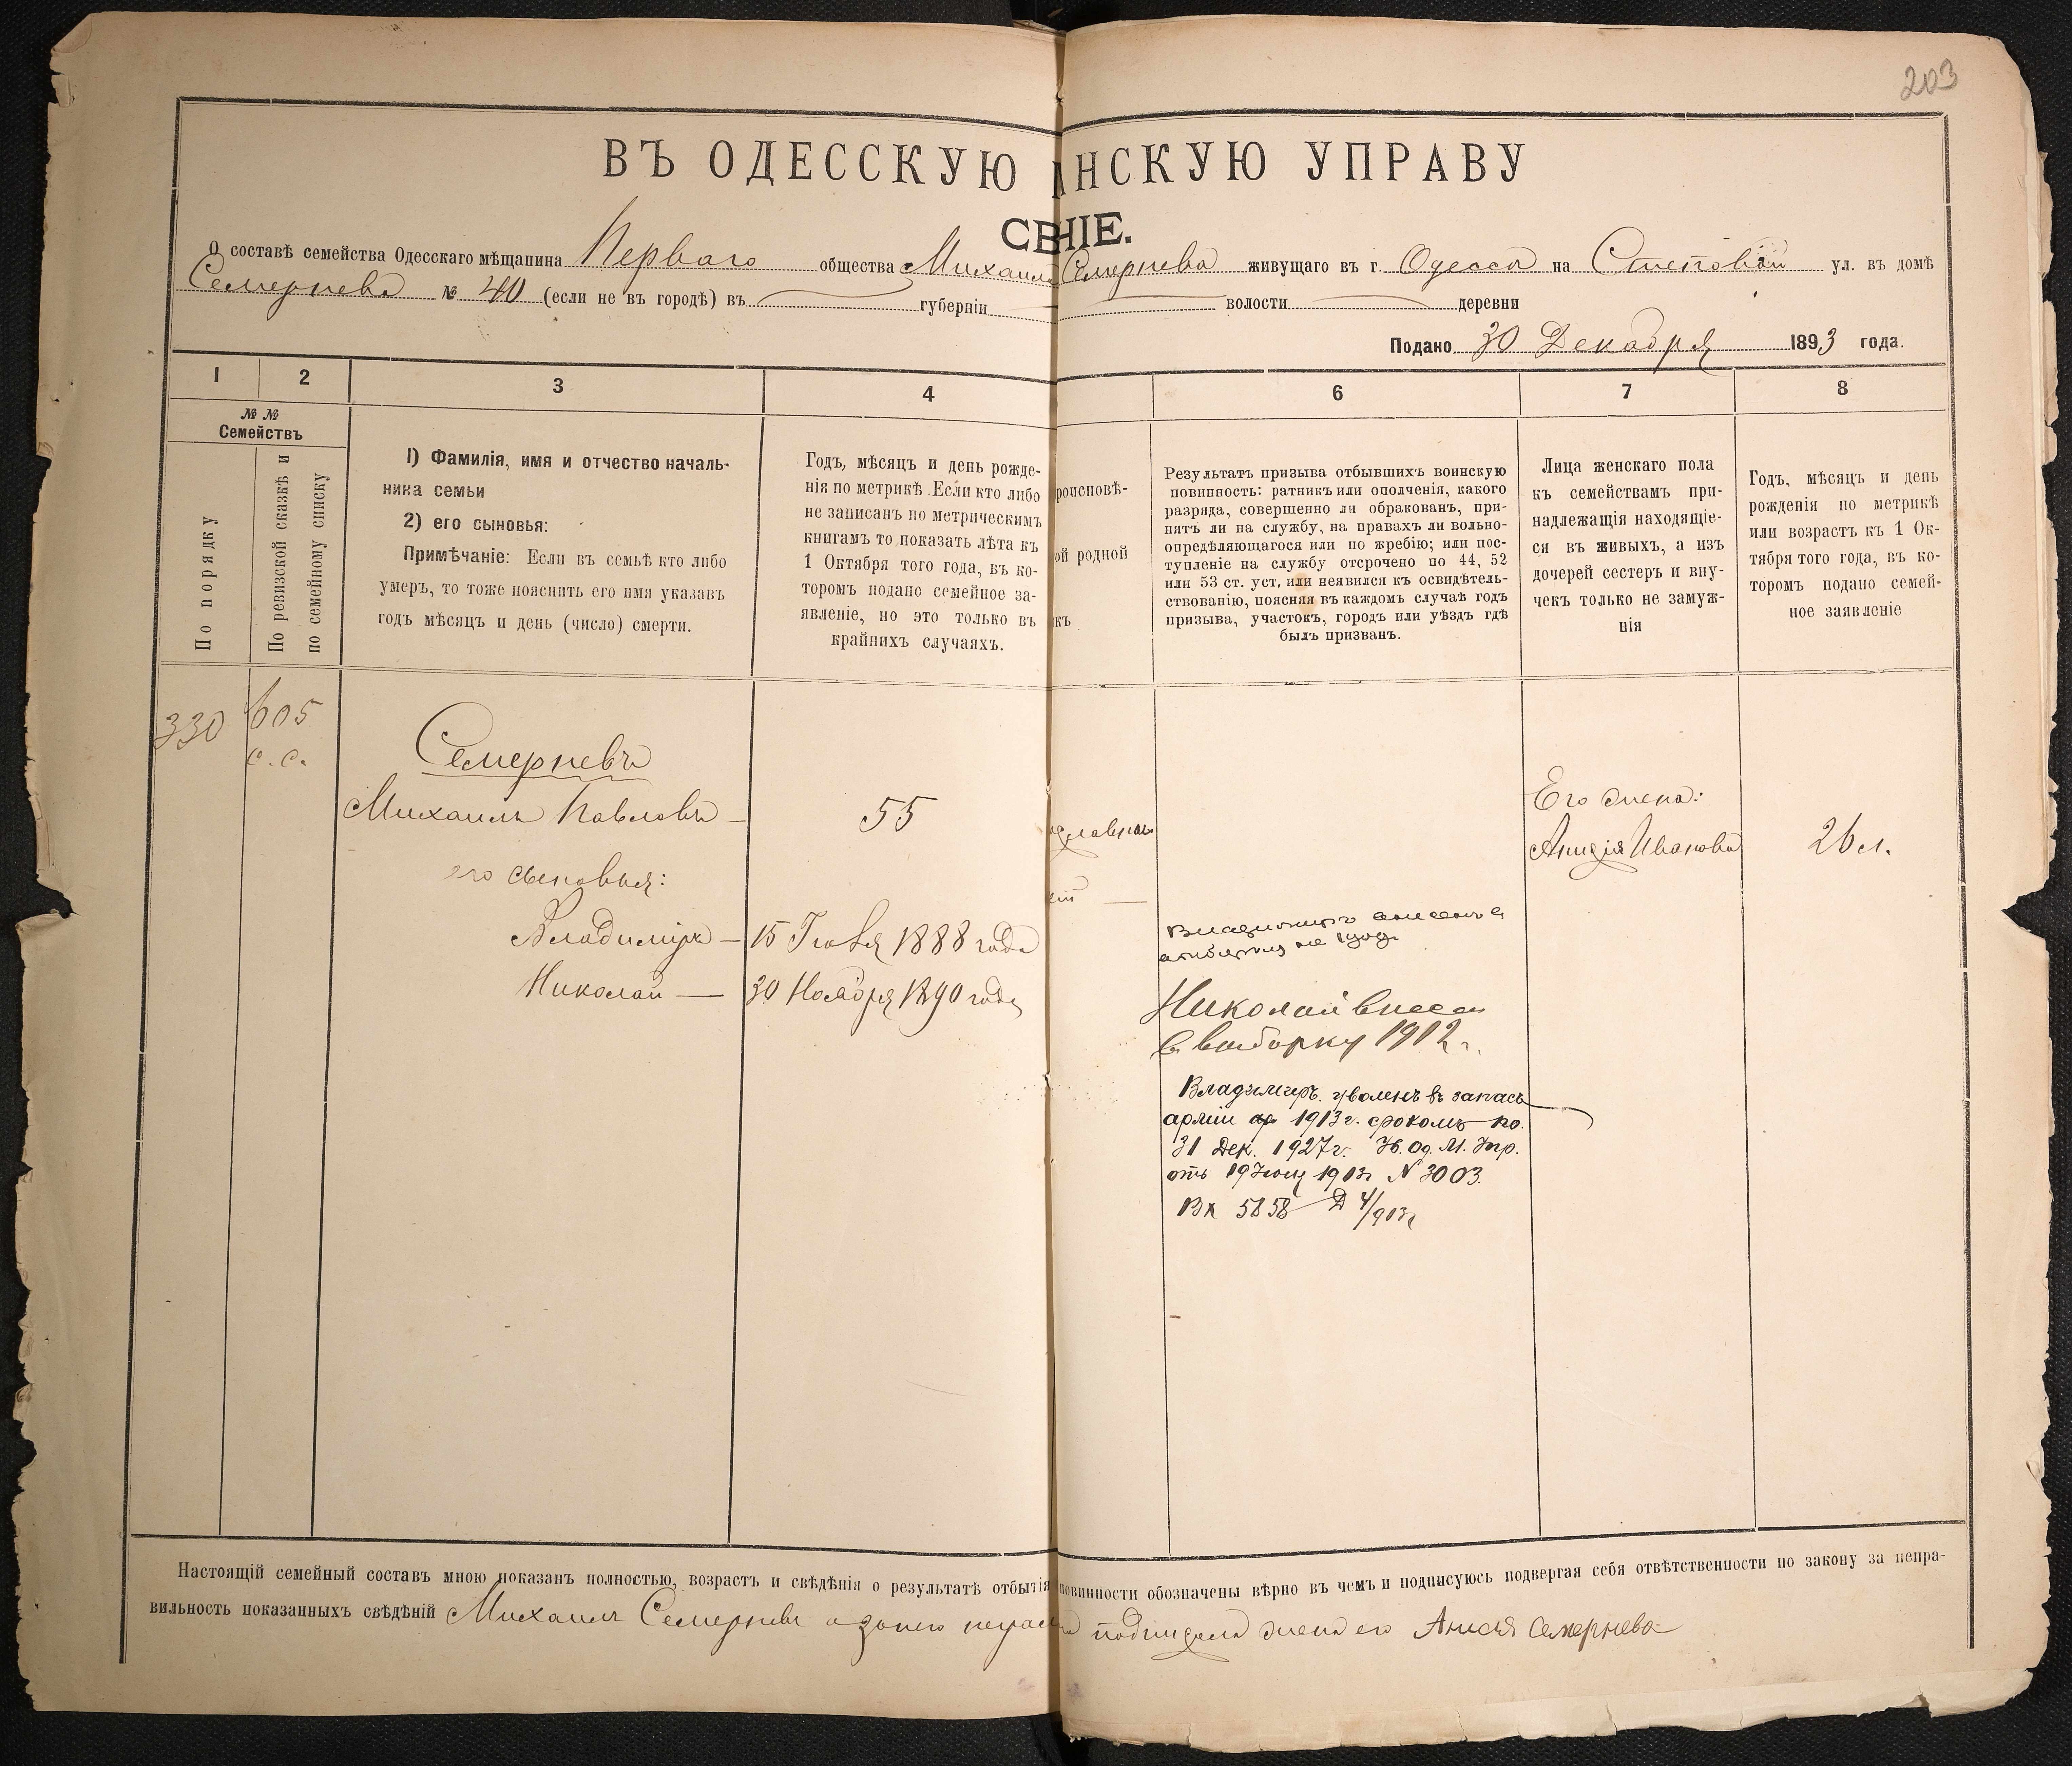 203
ВЪ ОДЕССКУЮ НСКУЮ УПРАВУ
СЕ НІЕ.
О составѣ семейства Одесскаго мѣщанина Перваго общества Михаила Семернева живущаго въ г. Одесса на Степовой ул. въ домѣ
Семернева № 40 (если не въ городѣ) въ губерніи волости деревни
Подано 30 Декабря 1893 года.
1 2 3 4 6 7 8
№ №
Семействъ
По порядку
По ревизской сказкѣ и
по семейному списку
1) Фамилія, имя и отчество началь-
ника семьи
2) его сыновья:
Примѣчаніе: Если въ семьѣ кто либо
умеръ, то тоже пояснить его имя указавъ
годъ мѣсяцъ и день (число) смерти.
Годъ, мѣсяцъ и день рожде-
нія по метрикѣ. Если кто либо
не записанъ по метрическимъ
книгамъ то показать лѣта къ
1 Октября того года, въ ко-
торомъ подано семейное за-
явленіе, но это только въ
крайнихъ случаяхъ.
роисповѣ-
ой родной
къ
Результатъ призыва отбывшихъ воинскую
повинность: ратникъ или ополченія, какого
разряда, совершенно ли обракованъ, при-
нятъ ли на службу, на правахъ ли вольно-
опредѣляющагося или по жребію; или пос-
тупленіе на службу отсрочено по 44, 52
или 53 ст. уст, или неявился къ освидѣтель-
ствованію, поясняя въ каждомъ случаѣ годъ
призыва, участокъ, городъ или уѣздъ гдѣ
былъ призванъ.
Лица женскаго пола
къ семействамъ при-
надлежащія находящіе-
ся въ живыхъ, а изъ
дочерей сестеръ и вну-
чекъ только не замуж-
нія
Годъ, мѣсяцъ и день
рожденія по метрикѣ
или возрастъ къ 1 Ок-
тября того года, въ ко-
торомъ подано семей-
ное заявленіе
330
605
с. с.
Семерневъ
Михаилъ Павловъ — 55
его сыновья:
Владиміръ — 15 Іюля 1888 года
Николай — 30 Ноября 1890 года
славнаго
Его жена:
Анисія Иванова 26 л.
Владиміръ
Николай внесен
в выборку 1912 г.
Владимиръ уволенъ въ запасъ
арміи 1913 г. срокомъ по
31 Дек. 1927 г. Ув. Од. М. Упр.
отъ 19 Іюля 1913 г N 3003.
Вх 5858 Д 4/913 г
Настоящій семейный составъ мною показанъ полностью, возрастъ и свѣдѣнія о результатѣ отбытія повинности обозначены вѣрно въ чемъ и подписуюсь подвергая себя отвѣтственности по закону за непра-
вильность показанныхъ свѣдѣній Михаилъ Семерневъ а за него подписала жена его Анисья Семернева